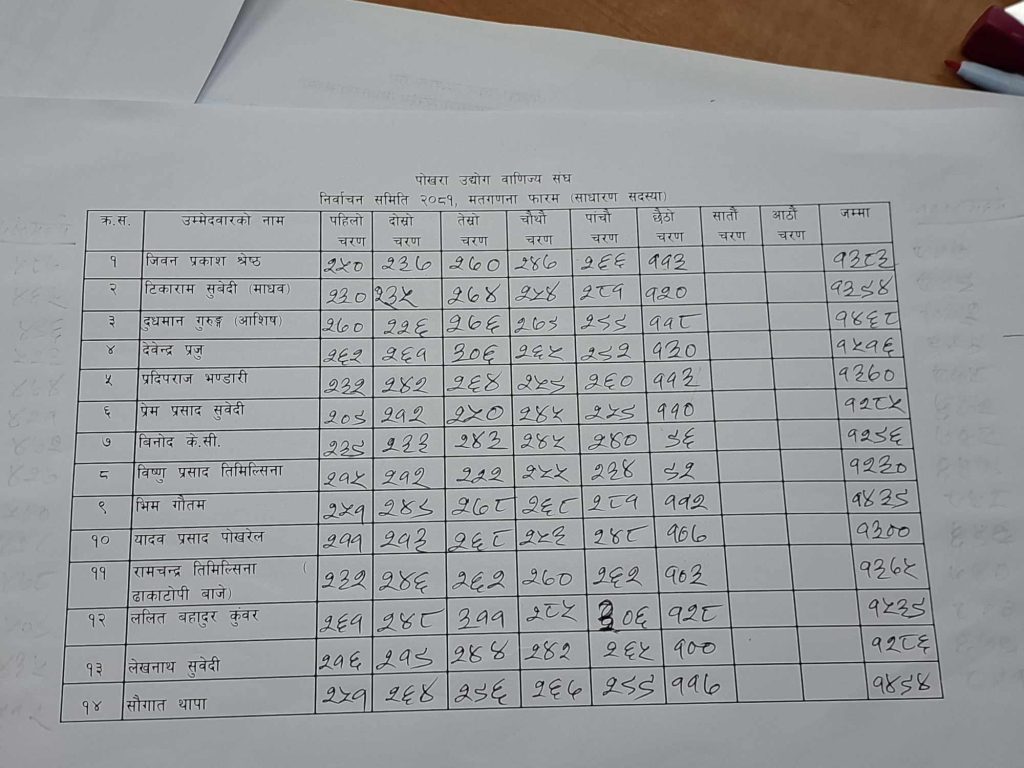 पोखरा उद्योग वाणिज्य संघ
निर्वाचन समिति २०८१, मतगणना फारम (साधारण सदस्या)
क्र.स. उम्मेदवारको नाम पहिलो चरण दोस्रो चरण तेस्रो चरण चौथौ चरण पांचौ चरण छैठौ चरण सातौ चरण आठौ चरण जम्मा
१ जिवन प्रकाश श्रेष्ठ २५० २३७ २७० २४७ २६६ ११३ १३८३
२ टिकाराम सुवेदी (माधव) २३० २३५ २७४ २५४ २८१ १२० १३९४
३ दुधमान गुरुङ्ग (आशिष) २७० २२६ २७६ २७९ २९९ ११८ १४६८
४ देवेन्द्र प्रजु २६२ २६१ ३०६ २६५ २९२ १३० १५१६
५ प्रदिपराज भण्डारी २३२ २४२ २६४ २५९ २६० ११३ १३७०
६ प्रेम प्रसाद सुवेदी २०९ २१२ २५० २४५ २५९ ११० १२८५
७ बिनोद के.सी. २३९ २३३ २४३ २४५ २४० ९६ १२९६
८ विष्णु प्रसाद तिमिल्सिना २१५ २१२ २२२ २५५ २३४ ९२ १२३०
९ भिम गौतम २५१ २४९ २७८ २६८ २८१ ११२ १४३९
१० यादव प्रसाद पोखरेल २११ २१३ २६८ २५३ २४८ १०७ १३००
११ रामचन्द्र तिमिल्सिना ( ढाकाटोपी बाजे) २३२ २४६ २६२ २७० २६२ १०३ १३७५
१२ ललित बहादुर कुंवर २६१ २४८ ३११ २८५ ३०६ १२८ १५३९
१३ लेखनाथ सुवेदी २१६ २१९ २४४ २४२ २६५ १०० १२८६
१४ सौगात थापा २५१ २६४ २९६ २६७ २९९ ११७ १४९४